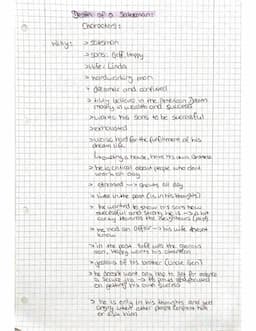 Death of a Salesman:
Characters:
Willy: > salesman
> sons: Biff, Happy
> wife: Linda
> hardworking man
> dreamer and confused
> Willy believes in the American Dream
mostly in wealth and success
> wants his sons to be successful
> exhausted
> works hard for the fulfillment of his
dream life
a house, have his own
> he is critical about people who don't
work all day
> stressed → all day
> lives in the past (is in his thoughts)
> he wanted to show his sons how
successful and strong he is →
towards the neighbours (past)
> he had an affair → his wife doesn't
know
> in the past Biff was the
son, Happy wants his attention
> jealous of his brother (Uncle Ben)
> he doesn't want any help to
a secure →
on getting his own success
> he is only in his thoughts and get
angry when other people
him or